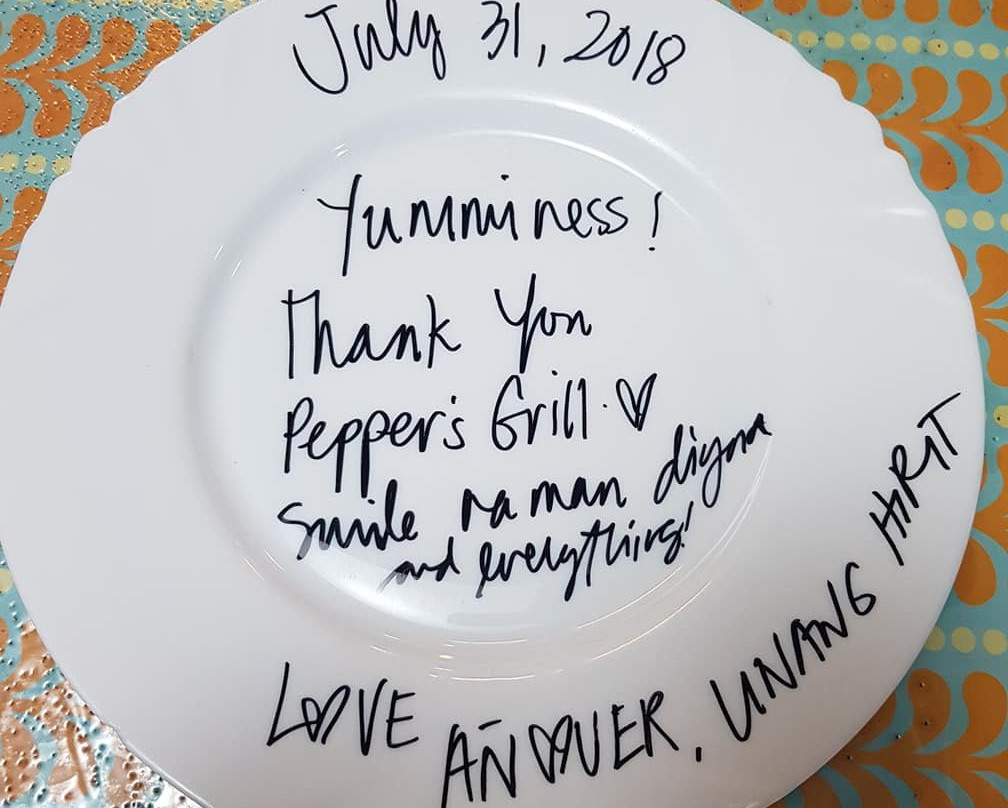 July 31, 2018
Yumminess!
Thank You
Pepper's Grill. ♡
Smile naman diyan
and everything!
LOVE
, UNANG HIRIT